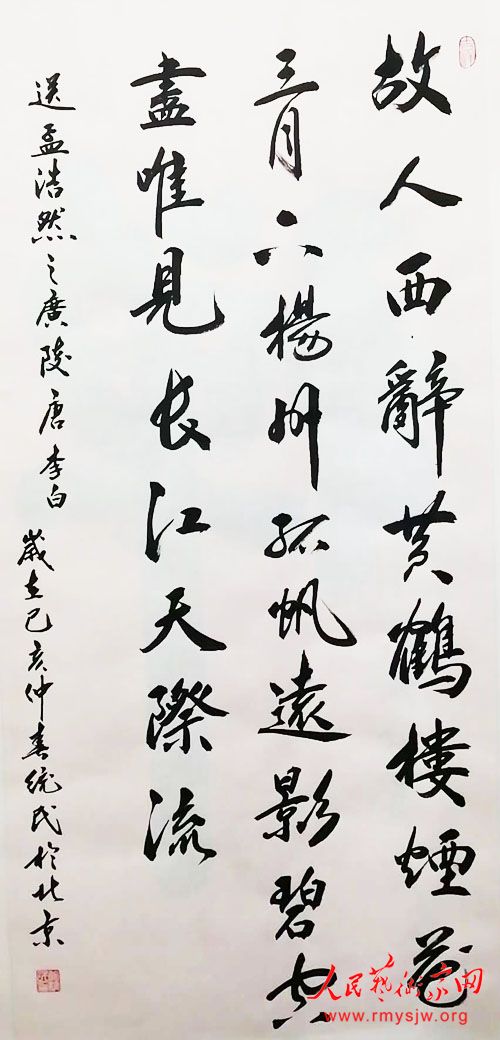 故人西辭黄鶴樓煙花
三月下楊州孤帆遠影碧空
盡唯見长江天際流
送孟浩然之廣陵唐李白
歲在己亥仲春統民於北京
人民藝術家网
www.rmysjw.org